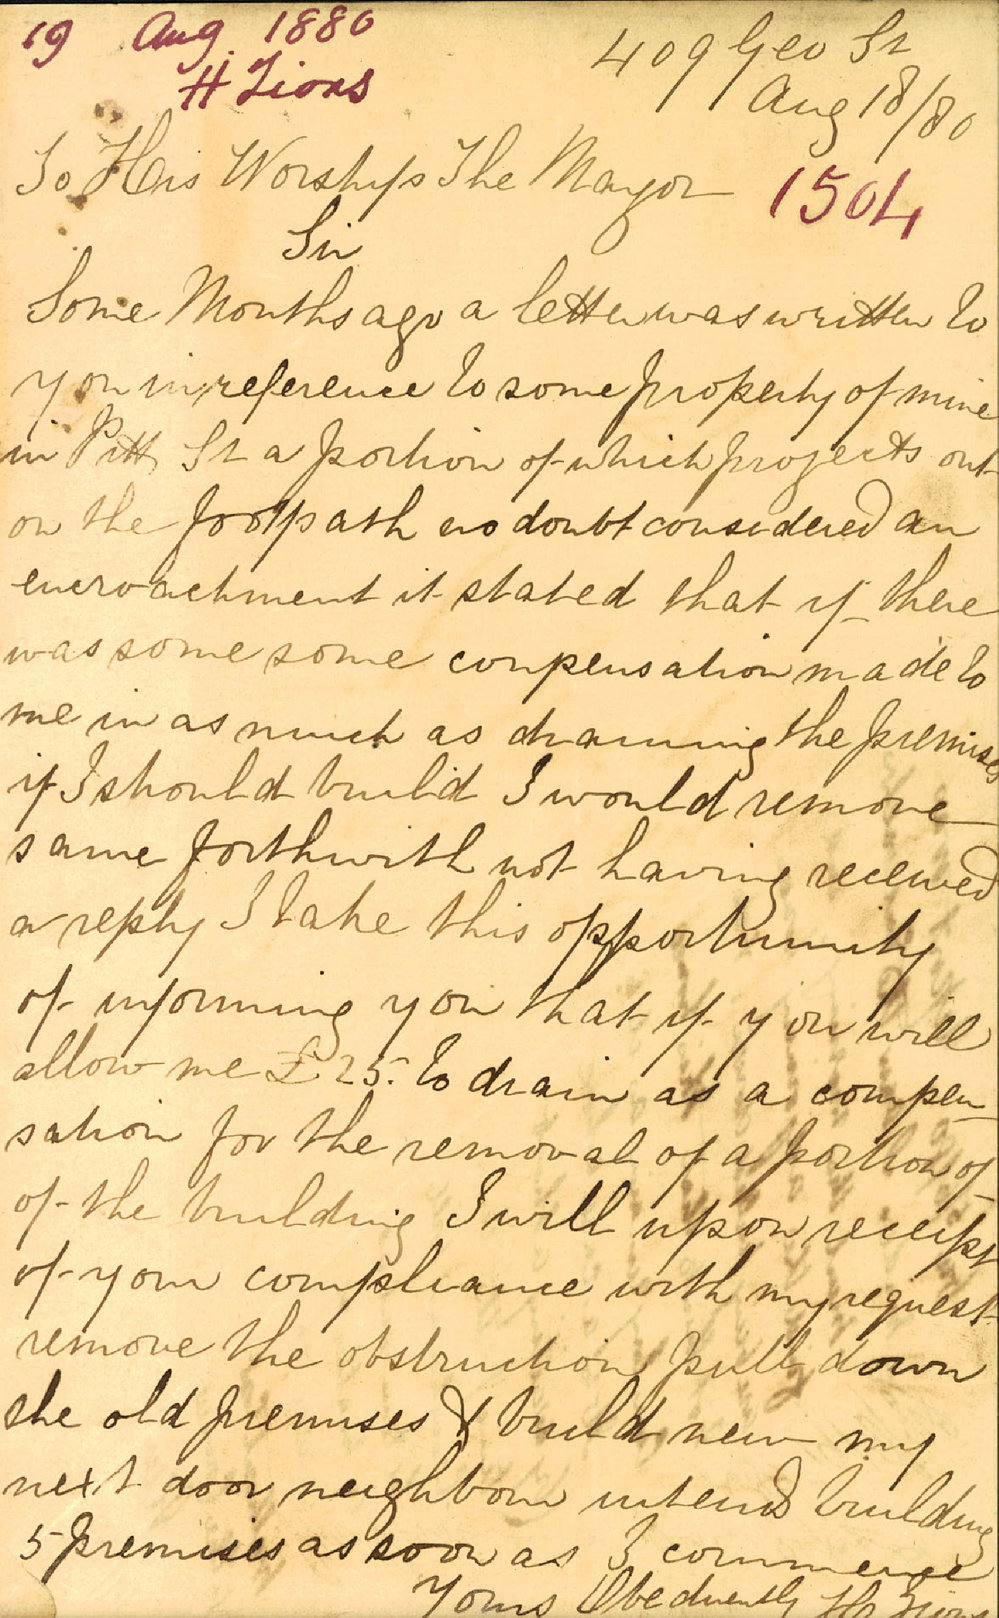 19 Aug. 1880
H Lions
409 Geo St
Aug 18/80
To His Worship The Mayor
1504
Sir
Some Months ago a letter was written to
you in reference to some property of mine
in Pitt St a portion of which projects out
on the footpath no doubt considered an
encroachment it stated that if there
was some some conpensation made to
me in as much as draining the premises
if I should build I would remove
same forthwith not having received
a reply I take this opportunity
of informing you that if you will
allow me £25. to drain as a compen
sation for the removal of a portion of
of the building I will upon receipt
of your compliance with my request
remove the obstruction pull down
the old premises & build new my
next door neighbour intend building
5 premises as soon as I commence
Yours Obediently H Lions